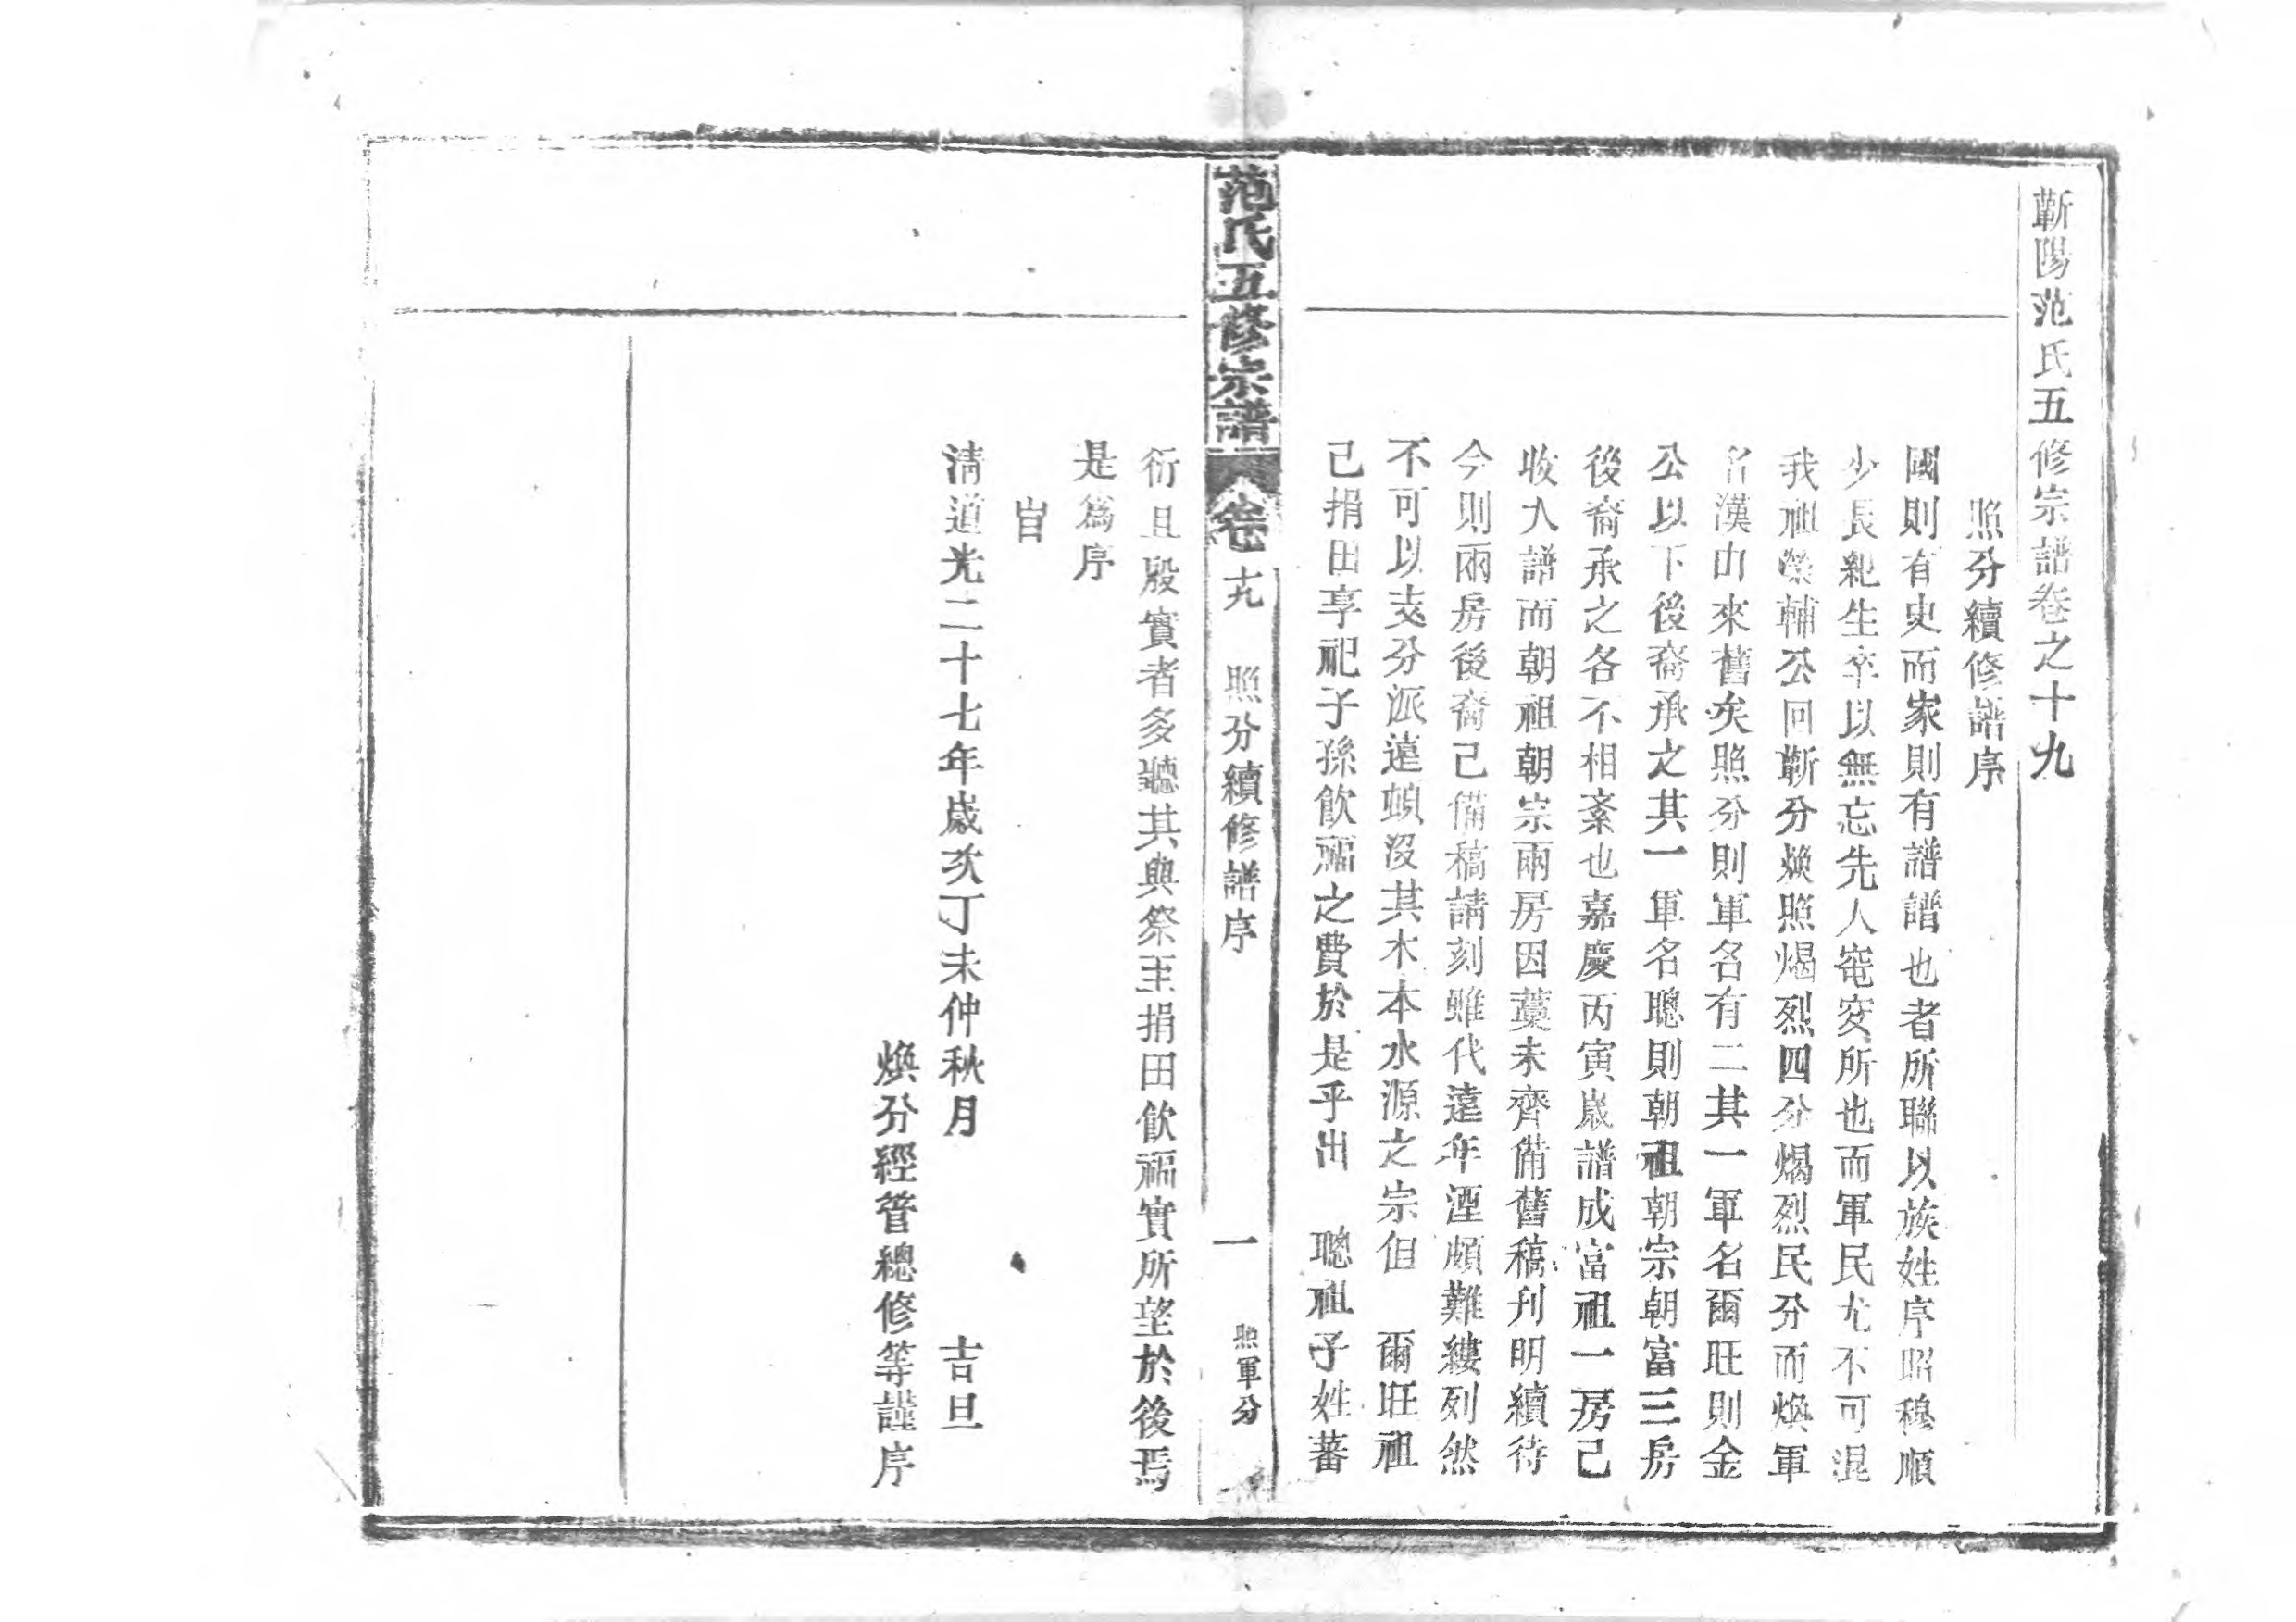 蘄陽范氏五修宗譜卷之十九
照分續修譜序
國則有史而家則有譜譜也者所聯以族姓序昭穆順
少長紀生卒以無忘先人窀穸所也而軍民尤不可混
我祖榮輔公回蘄分煥照焬烈四分焬烈民分而煥軍
名漢由來舊矣照分則軍名有二其一軍名爾旺則金
公以下後裔承之其一軍名聰則朝祖朝宗朝富三房
後裔承之各不相紊也嘉慶丙寅歲譜成富祖一房已
收入譜而朝祖朝宗兩房因藁未齊備舊稿刋明續待
今則兩房後裔己備稿請刻雖代遠年湮頗難縷列然
不可以支分派遠頓沒其木本水源之宗但 爾旺祖
己捐田享祀子孫飲福之費於是乎出 聰祖子姓蕃
范氏五修宗譜 卷十九 照分續修譜序 一 照軍分
衍且殷實者多聽其與祭至捐田飲福實所望於後焉
是為序
旹
清道光二十七年歲次丁未仲秋月 吉旦
煥分經管總修等謹序